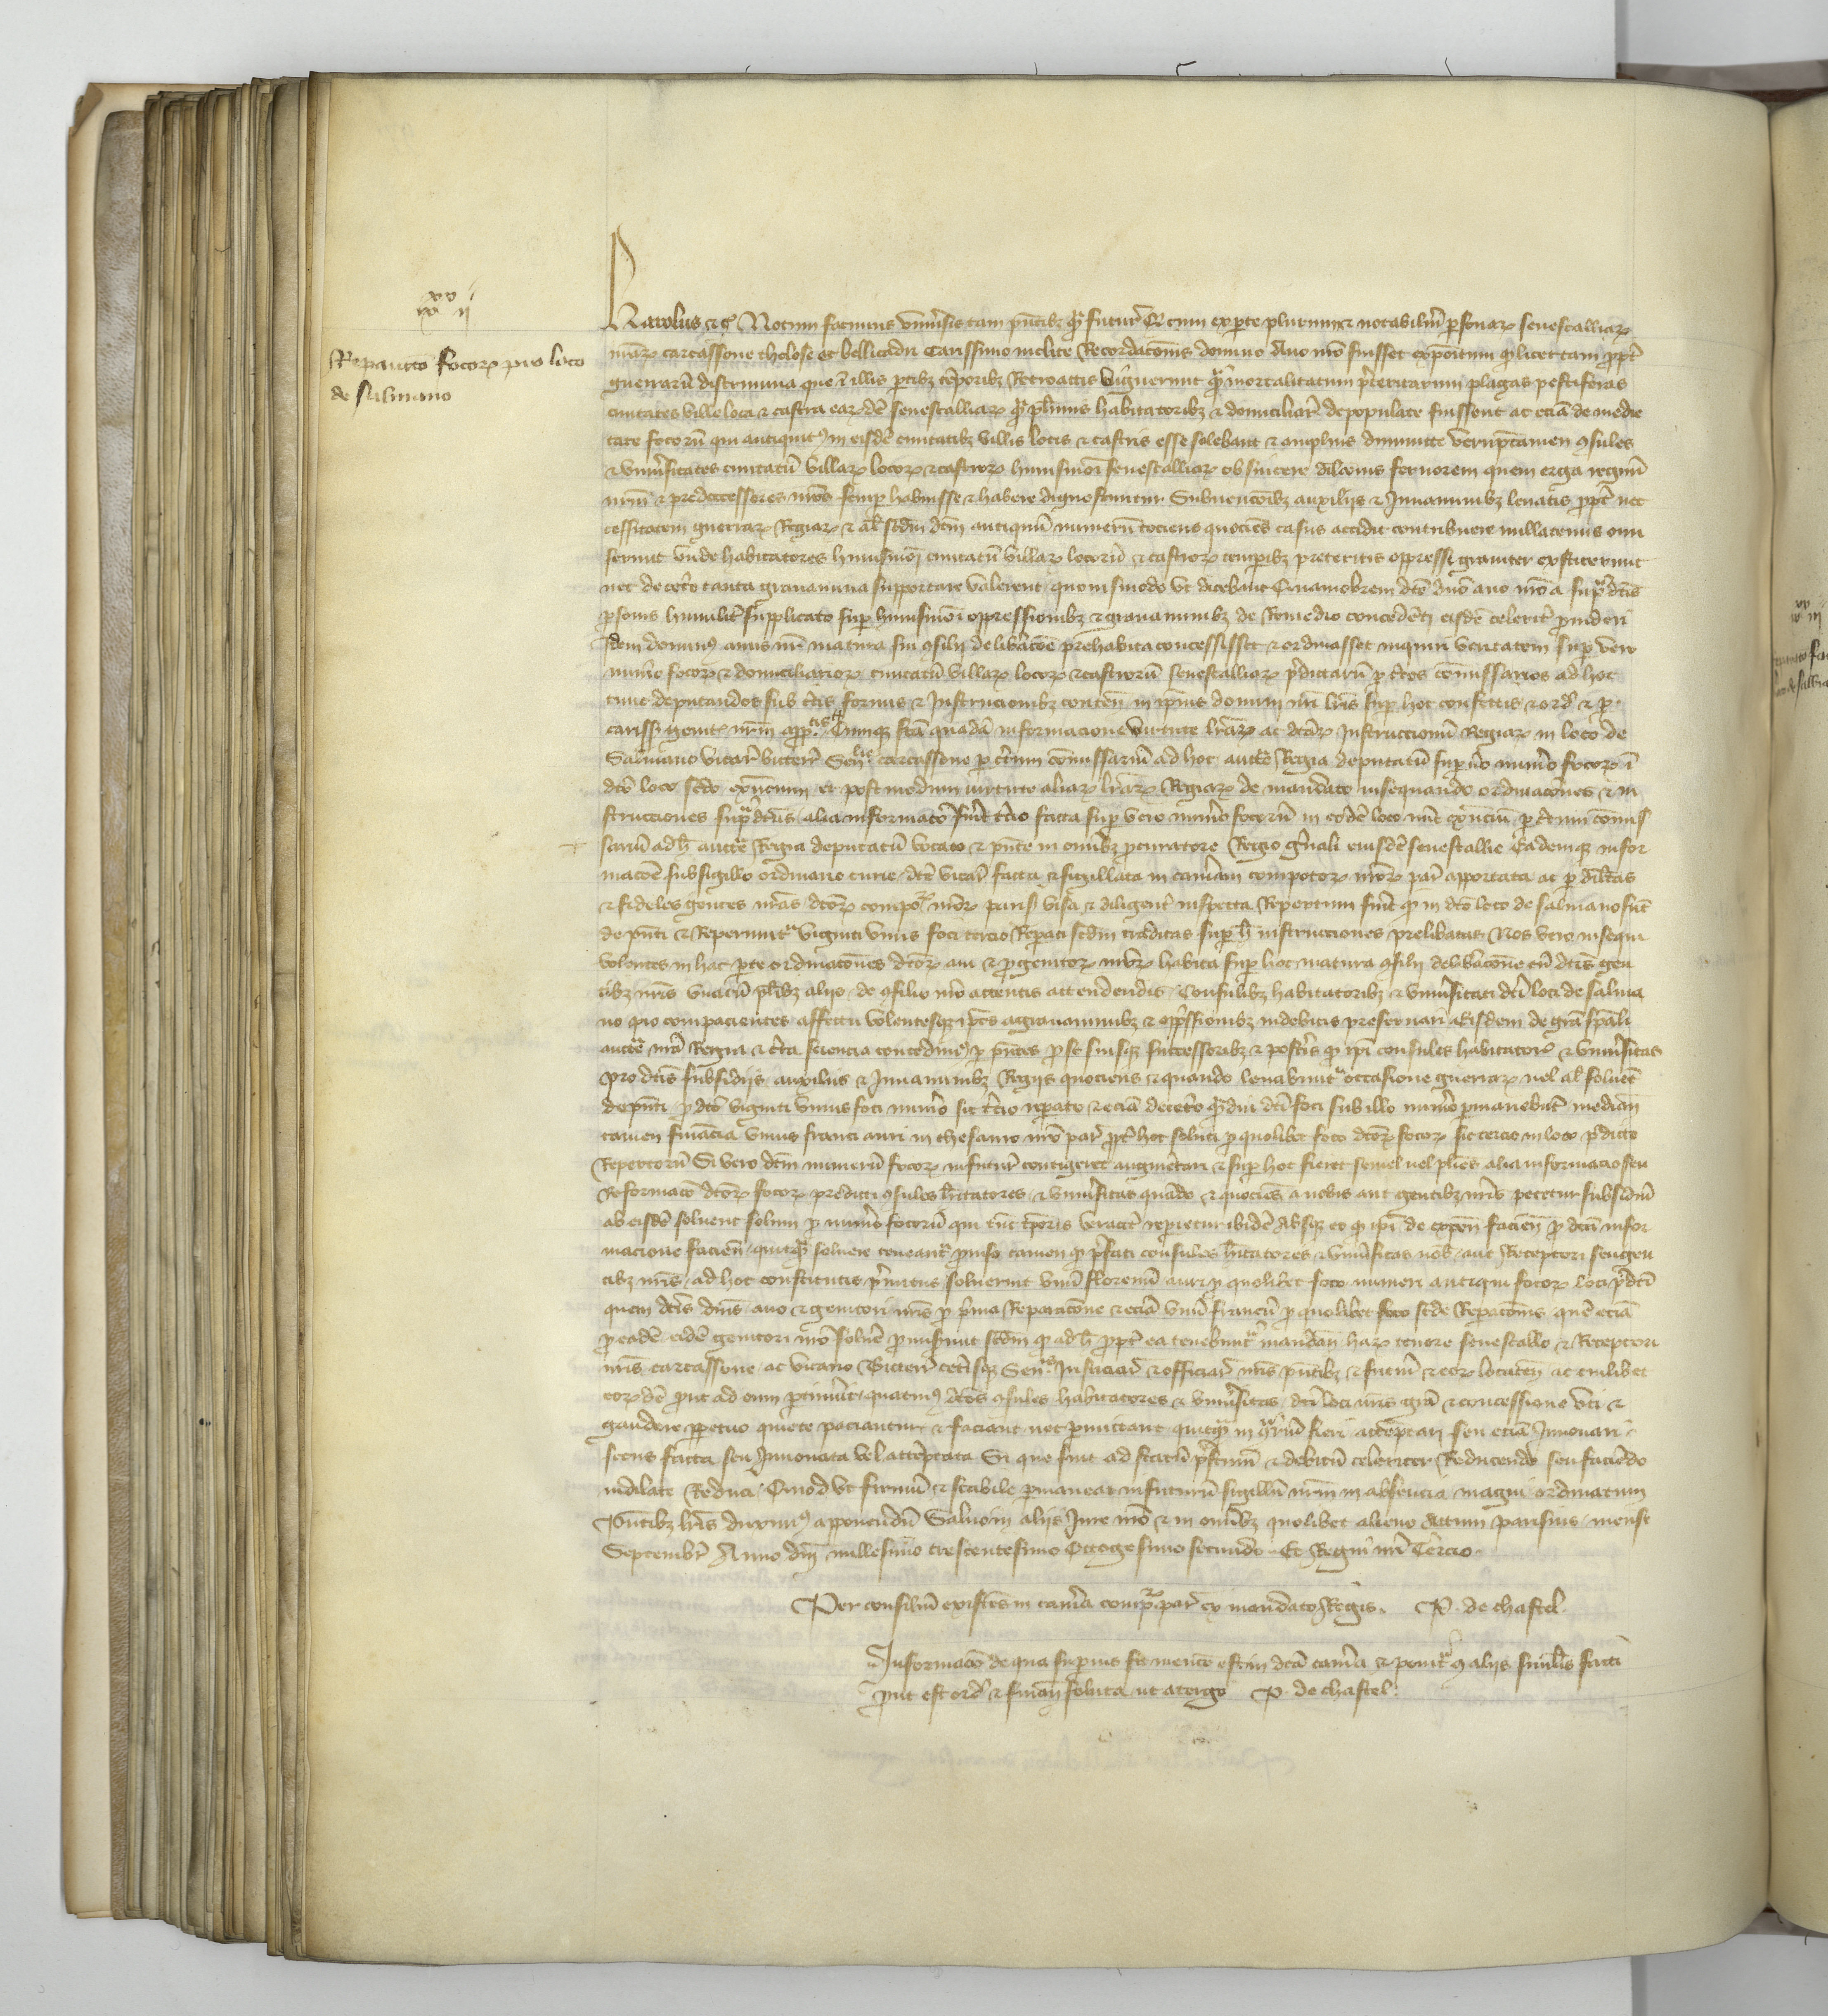 xx xx ii
Reparatio focorum pro loco
de Salmano
Karolus etc. Notum facimus universis tam presentibus quam futuris Quod cum ex parte plurimum notabilium personarum senescalliarum
nostrarum carcassone tholose et bellicadri Carissimo inclite Recordacionis domino Avo nostro fuisset expositum quod licet tam propter
guerrarum discrimina que in illis partibus temporibus Retroactis viguerunt quam mortalitatum preteritarum plagas pestiferas
civitates ville loca et castra earumdem senescalliarum quam plurimis habitatoribus et domiciliariis depopulate fuissent ac eciam de medie
tate focorum qui antiquitus in eisdem civitatibus villis locis et castris esse solebant et amplius diminute veruptamen consules
et universitates civitatum villarum locorum et castrorum huiusmodi senescalliarum ob sincere dilectionis fervorem quem erga regnum
nostrum et predecessores nostros semper habuisse et habere dignoscuntur Subvencionibus auxiliis et Juvaminibus levatis propter nec
cessitatem guerrarum Regiarum et alias secundum dictum antiquum numerum tociens quociens casus accidit contribuere nullatenus omi
serunt unde habitatores huiusmodi civitatum villarum locorum et castrorum temporibus preteritis oppressi graviter exstiterunt
nec decetero tanta gravamina supportare valerent quovismodo ut dicebant Quamobrem dicto domino avo nostro a supradictis
personis humiliter supplicato super huiusmodi oppressionibus et gravaminibus de Remedio concedenti eisdem celeriter provideri
Idem dominus avus noster matura sui consilii deliberacione prehabita concessisset et ordinasset inquiri veritatem super vero
numero focorum et domiciliariorum civitatum villarum locorum et castrorum senescalliarum predictarum per certos commissarios ad hoc
tunc deputandos sub certis formis et Instruccionibus contentis in ipsius domini nostri litteris super hoc confectis et ord. et per
carissi genit. nostrum app. Cumque facta quadam informacione virtute litterarum ac dictarum Instruccionum Regiarum in loco de
Salmano vicarie bitterris Senescallie carcassone per certum commissarium ad hoc auctoritate Regia deputatum super vero numero focorum in
dicto loco secundo existencium et post modum virtute aliarum litterarum Regiarum de mandato insequendo ordinaciones et in
strucciones supradictas alia informacio fuerit tercio facta super vero numero focorum in eodem loco nunc existencium per dictum commis
sarium ad hoc auctoritate Regia deputatum vocato et presente in omnibus procuratore Regio generali eiusdem senescallie Eademque infor
macione sub sigillo ordinario curie dicte vicarie facta et sigillata in cameram compotorum nostrorum paris. apportata ac per dilectos
et fideles gentes nostras dictorum compotorum nostrorum paris. visa et diligenter inspecta Repertum fuerit quod in dicto loco de salmano sunt
de presenti et Reperiuntur viginti unus foci tercio Reparati secundum traditas super hoc instrucciones prelibatas Nos vero insequi
volentes in hac parte ordinaciones dictorum avi et progenitorum nostrorum habita super hoc matura consilii deliberacione cum dictis gen
tibus nostris unacum pluribus aliis de consilio nostro attentis attendendis Consulibus habitatoribus et universitati dicti loci de salma
no pio compacientes affectu volentesque ipsos a gravaminibus et oppressionibus indebitis preservari Eisdem de gracia speciali
auctoritate nostra Regia et certa sciencia concedimus per presentes pro se suisque successoribus et posteris quod ipsi consules habitatores et universitas
pro dictis subsidiis auxiliis et Juvaminibus Regiis quociens et quando levabuntur occasione guerrarum vel alias solvent
de presenti pro dicto viginti unius foci numero sic tercio reparato et eciam decetero quamdiu dicti foci sub illo numero permanebunt mediante
tamen financia unius franci auri in thesauro nostro paris. propter hoc soluti pro quolibet foco dictorum focorum sic tercio in loco predicto
Repertorum Si vero dictum numerum focorum in futurum contigerit augmentari et super hoc fieret semel vel pluries alia informacio seu
Reformacio dictorum focorum predicti consules habitatores et universitas quando et quociens a nobis aut gentibus nostris petetur subsidium
ab eisdem solvent solum pro numero focorum qui tunc temporis veraciter reperietur ibidem Absque eo quod ipsi de expensis faciendis pro dicta infor
macione faciendis quicquam solvere teneantur proviso tamen quod prefati consules habitatores et universitas nobis aut Receptori seu gen
tibus nostris ad hoc constitutis primitus solverint unum florenum auri pro quolibet foco numeri antiqui focorum loci predicti
quem dictis dominis avo et genitori nostris pro prima Reparacione et eciam unum francum pro quolibet foco secunde Reparacionis quem eciam
pro eadem eidem genitori nostro solvere promiserunt secundum quod ad hoc propter ea tenebuntur mandantes harum tenore senescallo et Receptori
nostris carcassone ac vicario Bitterris ceterisque Senescallis Justiciariis et officiariis nostris presentibus et futuris et eorum locatenentibus ac cuilibet
eorumdem prout ad eum pertinuerit quatinus dictos consules habitatores et universitas dicti loci nostris gracia et concessione uti et
gaudere perpetuo quiete paciantur et faciant nec permittant quicquam in contrarium fieri attemptari seu eciam Innovari
secus facta seu Innovata vel attemptata Si que sint ad statum pristinum et debitum celeriter Reducendo seu faciendo
indilate Reduci Quod ut firmum et stabile permaneat in futurum sigillum nostrum in absencia magni ordinatum
Presentibus litteris duximus apponendum Salvo in aliis Jure nostro et in omnibus quolibet alieno Datum parisius mense
Septembris Anno domini millesimo trescentesimo Octogesimo secundo Et Regni nostri Tercio
Per consilium existens in camera compotorum paris. ex mandato Regis. P. de chastel.
Informacio de qua superius fit mencio est in dicta camera et ponitur cum aliis similibus facti
prout est ord. et financia soluta ut a tergo P. de chastel.